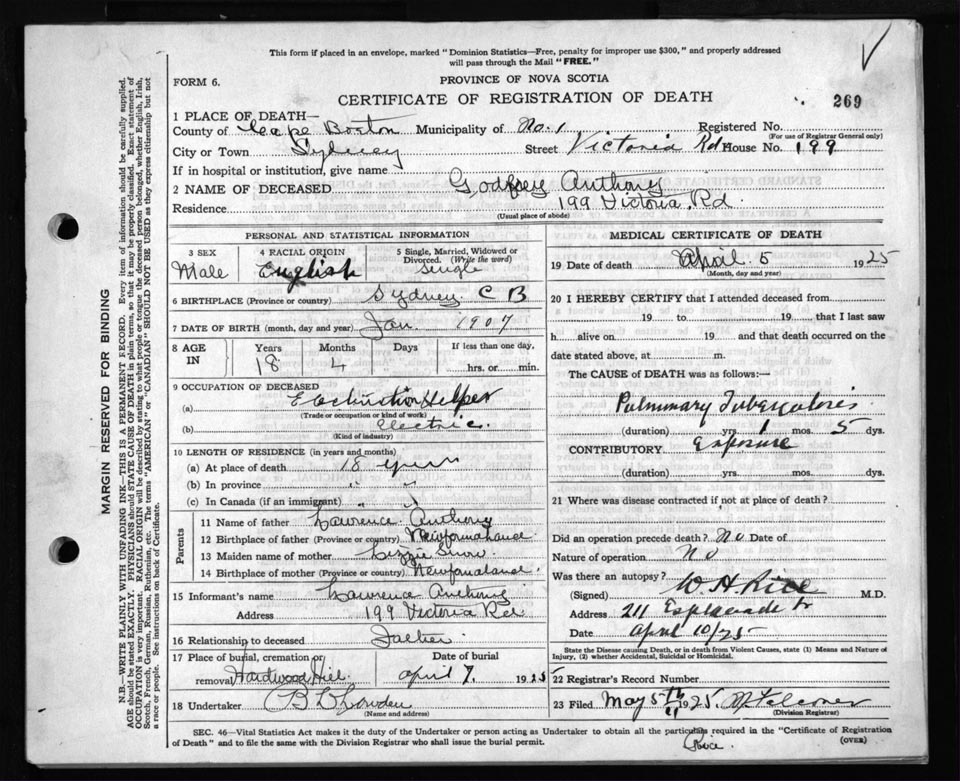 This form if placed in an envelope, marked "Dominion Statistics—Free, penalty for improper use $300," and properly addressed
will pass through the Mail "FREE."
FORM 6.
PROVINCE OF NOVA SCOTIA
CERTIFICATE OF REGISTRATION OF DEATH
269
1 PLACE OF DEATH—
County of Cape Breton Municipality of No. 1 Registered No.
(For use of Registrar General only)
City or Town Sydney Street Victoria Rd House No. 199
If in hospital or institution, give name
2 NAME OF DECEASED Godfrey Anthony
Residence 199 Victoria Rd.
(Usual place of abode)
PERSONAL AND STATISTICAL INFORMATION
3 SEX Male
4 RACIAL ORIGIN English
5 Single, Married, Widowed or Divorced. (Write the word) Single
6 BIRTHPLACE (Province or country) Sydney C B
7 DATE OF BIRTH (month, day and year) Jan. 1907
8 AGE IN Years 18 Months 4 Days If less than one day, hrs. or min.
9 OCCUPATION OF DECEASED
(a) Helper
(Trade or occupation or kind of work)
(b) Electric.
(Kind of industry)
10 LENGTH OF RESIDENCE (in years and months)
(a) At place of death 18 years
(b) In province " "
(c) In Canada (if an immigrant) " "
Parents
11 Name of father Lawrence Anthony
12 Birthplace of father (Province or country) Newfoundland
13 Maiden name of mother Lizzie Snow
14 Birthplace of mother (Province or country) Newfoundland.
15 Informant's name Lawrence Anthony
Address 199 Victoria Rd
16 Relationship to deceased Father.
17 Place of burial, cremation or removal Hardwood Hill
Date of burial April 7. 1925
18 Undertaker
(Name and address)
MEDICAL CERTIFICATE OF DEATH
19 Date of death April 5 1925
(Month, day and year)
20 I HEREBY CERTIFY that I attended deceased from
19 to 19 that I last saw
h alive on 19 and that death occurred on the
date stated above, at m.
The CAUSE of DEATH was as follows:—
Pulmonary Tuberculosis
(duration) yrs. 1 mos. 5 dys.
CONTRIBUTORY Exposure
(duration) yrs. mos. dys.
21 Where was disease contracted if not at place of death?
Did an operation precede death? No Date of
Nature of operation No
Was there an autopsy?
(Signed) W. H. Rice M.D.
Address 211 Esplanade
Date April 10/25
State the Disease causing Death, or in death from Violent Causes, state (1) Means and Nature of
Injury, (2) whether Accidental, Suicidal or Homicidal.
22 Registrar's Record Number
23 Filed May 5th 1925.
(Division Registrar)
SEC. 46—Vital Statistics Act makes it the duty of the Undertaker or person acting as Undertaker to obtain all the particulars required in the "Certificate of Registration
of Death" and to file the same with the Division Registrar who shall issue the burial permit.
(OVER)
Rice.
MARGIN RESERVED FOR BINDING
N.B.—WRITE PLAINLY WITH UNFADING INK—THIS IS A PERMANENT RECORD. Every item of information should be carefully supplied.
AGE should be stated EXACTLY. PHYSICIANS should STATE CAUSE OF DEATH in plain terms, so that it may be properly classified. Exact statement of
OCCUPATION is very important. RACIAL ORIGIN will be described by stating to what people or tongue the deceased person belonged, whether English, Irish,
Scotch, French, German, Russian, Ruthenian, etc. The terms "AMERICAN" or "CANADIAN" SHOULD NOT BE USED as they express citizenship but not
a race or people. See instructions on back of Certificate.